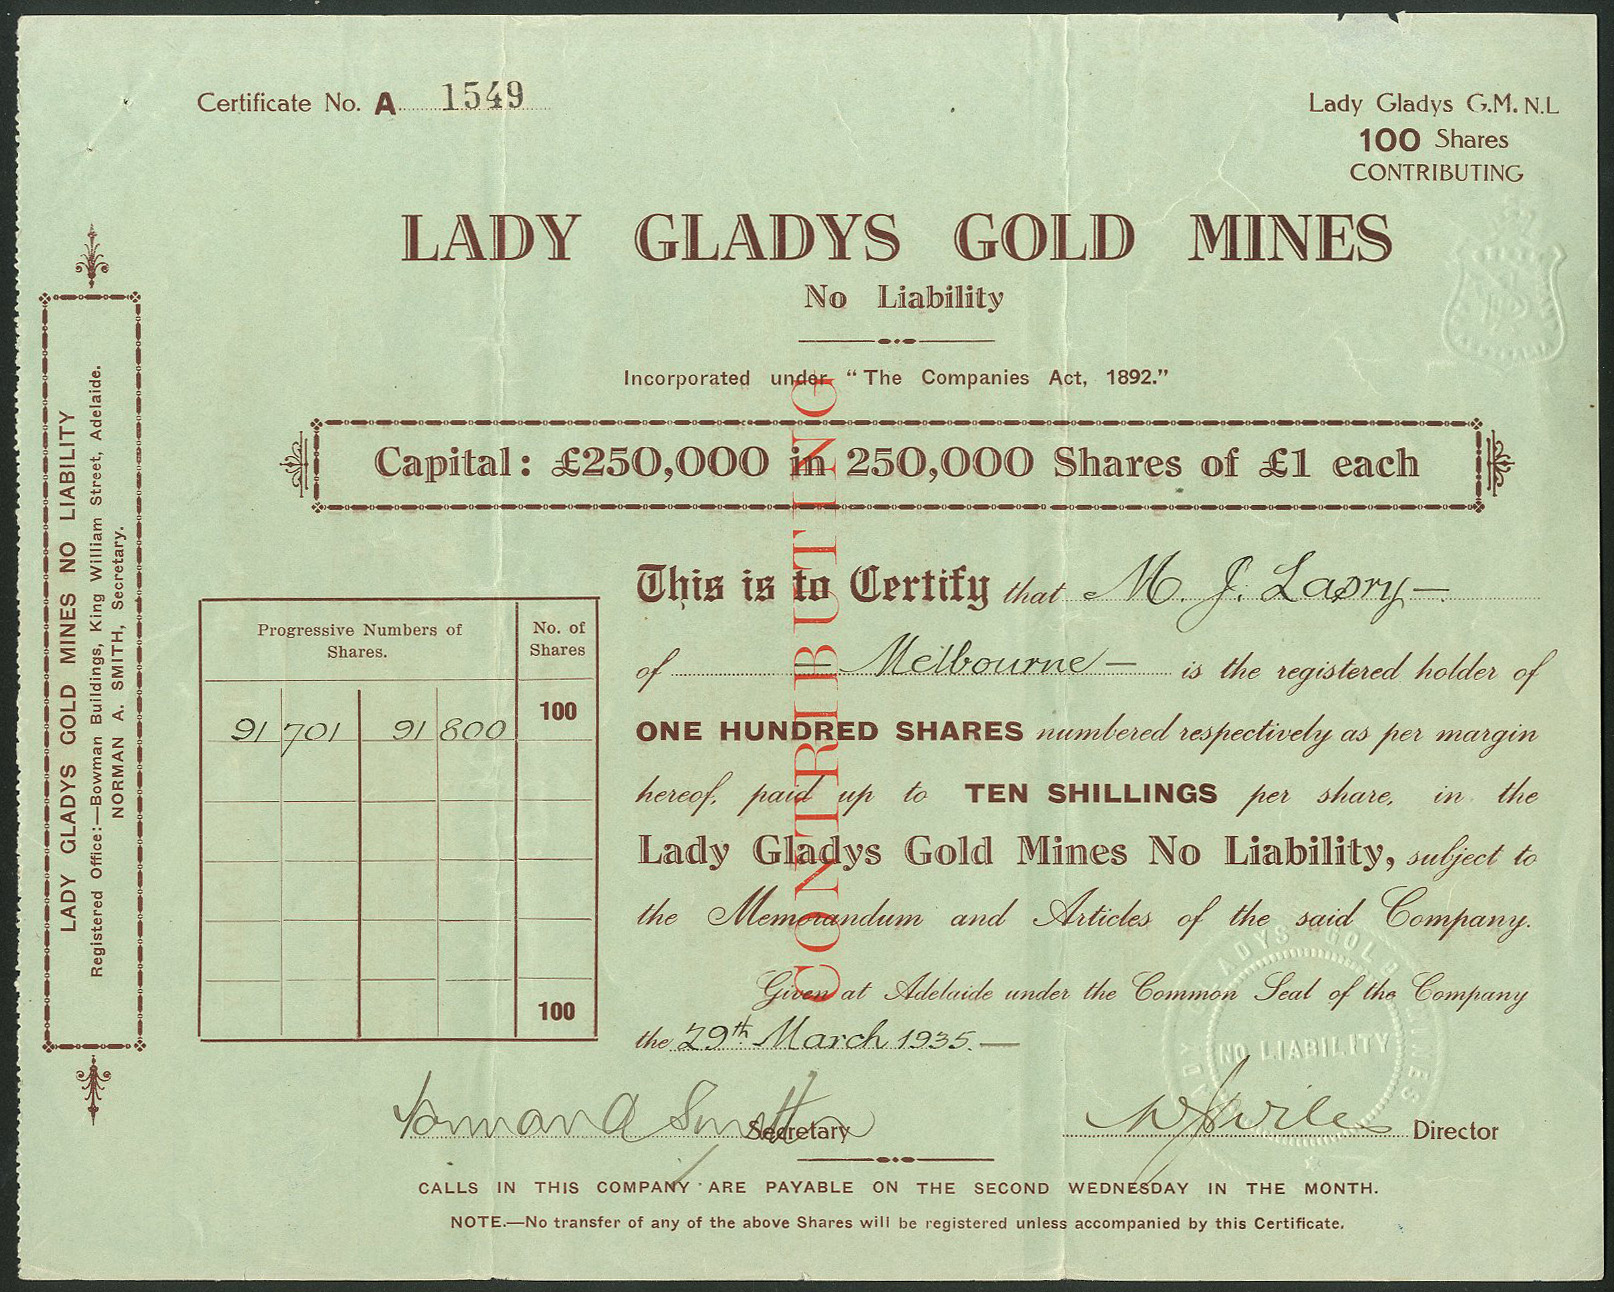 Certificate No. A 1549
Lady Gladys G.M. N.L
100 Shares
CONTRIBUTING
LADY GLADYS GOLD MINES
No Liability
Incorporated under "The Companies Act, 1892."
Capital: £250,000 in 250,000 Shares of £1 each
CONTRIBUTING
LADY GLADYS GOLD MINES NO LIABILITY
Registered Office:—Bowman Buildings, King William Street, Adelaide.
NORMAN A. SMITH, Secretary.
Progressive Numbers of Shares.
No. of Shares
91 701 91 800 100
100
This is to Certify that M. J. —
of — Melbourne — is the registered holder of
ONE HUNDRED SHARES numbered respectively as per margin
hereof, paid up to TEN SHILLINGS per share, in the
Lady Gladys Gold Mines No Liability, subject to
the Memorandum and Articles of the said Company.
Given at Adelaide under the Common Seal of the Company
the 29th March 1935. —
LADY GLADYS GOLD MINES
NO LIABILITY
Norman A Smith Secretary
Director
CALLS IN THIS COMPANY ARE PAYABLE ON THE SECOND WEDNESDAY IN THE MONTH.
NOTE.—No transfer of any of the above Shares will be registered unless accompanied by this Certificate.